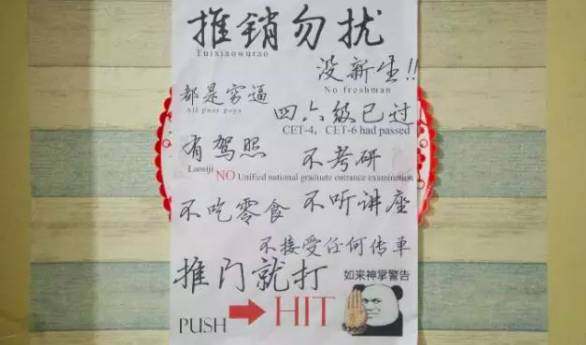 推销勿扰
Tuixiaowurao
没新生!!
No freshman
都是穷逼
All poor guys
四六级已过
CET-4、CET-6 had passed
有驾照 不考研
Laosiji NO Unified national graduate entrance examination
不吃零食 不听讲座
不接受任何传单
推门就打 如来神掌警告
PUSH HIT